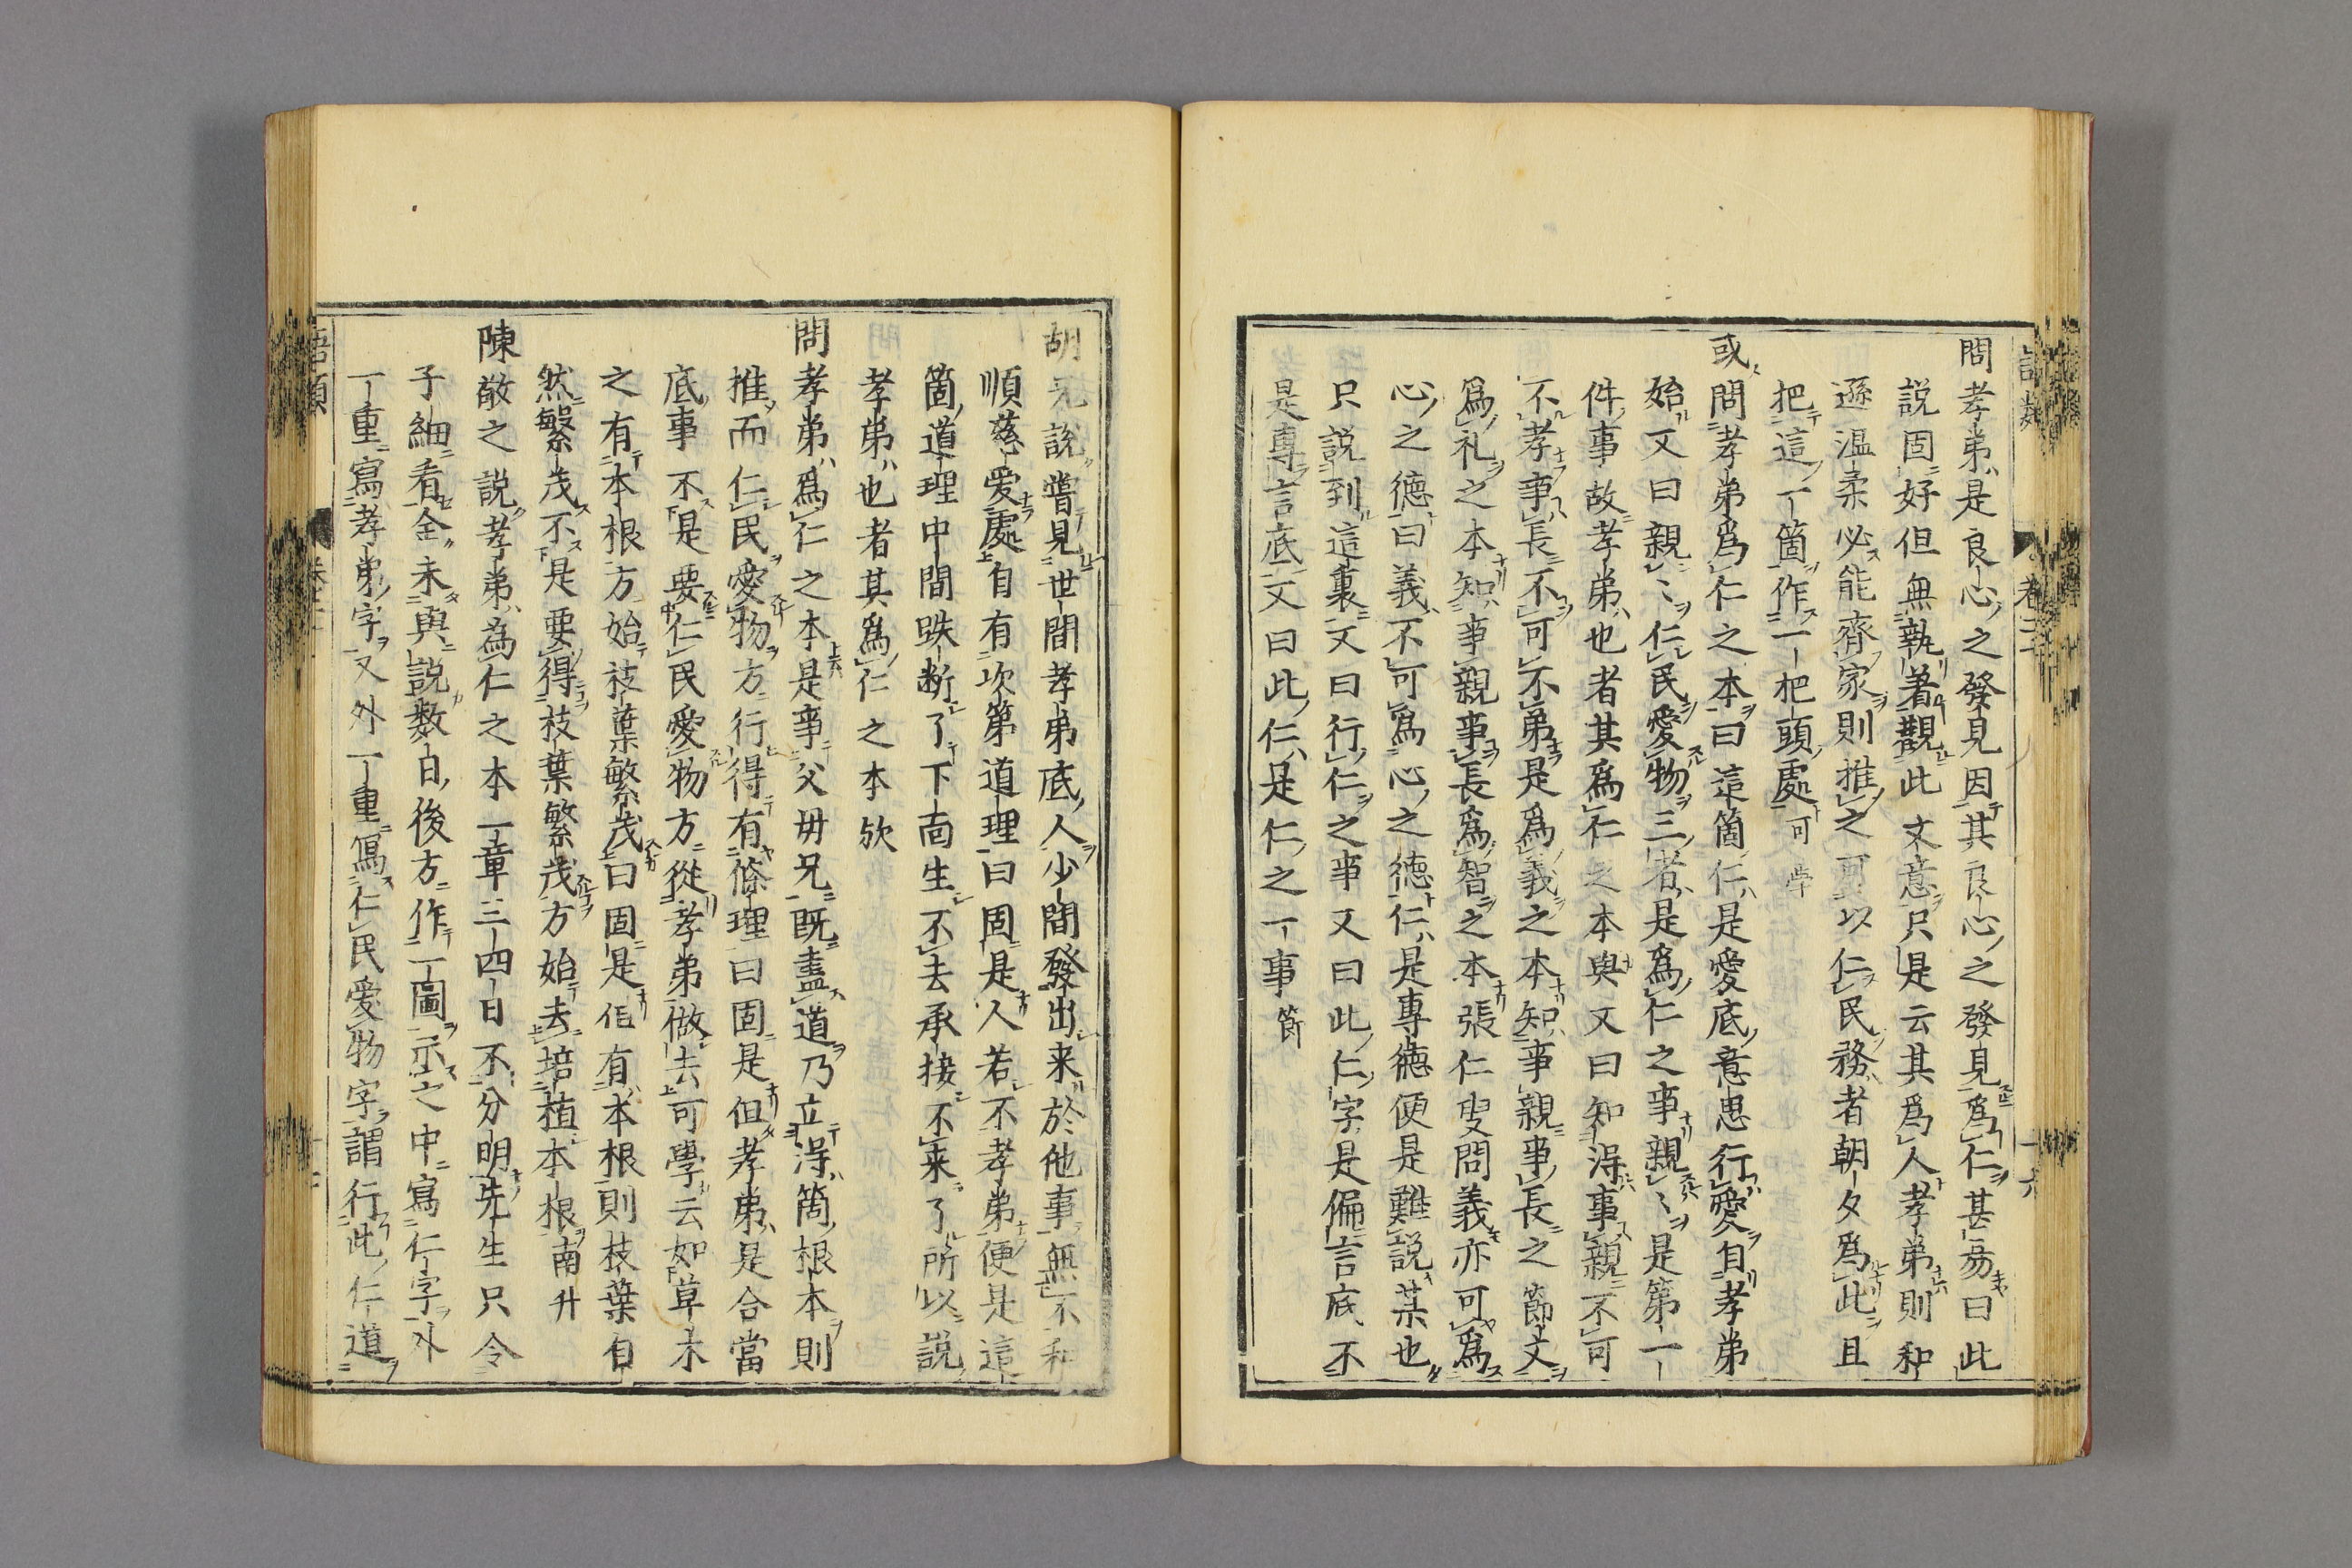 問孝弟是良心之發見因其良心之發見爲仁甚易曰此
説固好但無執着觀此文意只是云其爲人孝弟則和
遜温柔必能齊家則推之可以仁民務者朝夕爲此且
把這一箇作一把頭處可学
或問孝弟爲仁之本曰這箇仁是愛底意思行愛自孝弟
始又曰親〻仁民愛物三者是爲仁之事親〻是第一
件事故孝弟也者其爲仁之本與又曰知得事親不可
不孝事長不可不弟是爲義之本知事親事長之節文
爲礼之本知事親事長爲智之本張仁叟問義亦可爲
心之徳曰義不可爲心之徳仁是專徳便是難説某也
只説到這裏又曰行仁之事又曰此仁字是偏言底不
是專言底又曰此仁是仁之一事節
胡兄説嘗見世間孝弟底人少間發出来於他事無不和
順慈愛處自有次第道理曰固是人若不孝弟便是這
箇道理中間跌断了下面生不去承接不来了所以説
孝弟也者其爲仁之本欤
問孝弟爲仁之本是事父母兄既盡道乃立得箇根本則
推而仁民愛物方行得有條理曰固是但孝弟是合當
底事不是要仁民愛物方從孝弟做去可學云如草木
之有本根方始枝葉繁茂曰固是但有本根則枝葉自
然繁茂不是要得枝葉繁茂方始去培植本根南升
陳敬之説孝弟為仁之本一章三四日不分明先生只令
子細看全未與説数日後方作一圖示之中寫仁字外
一重寫孝弟字又外一重寫仁民愛物字謂行此仁道